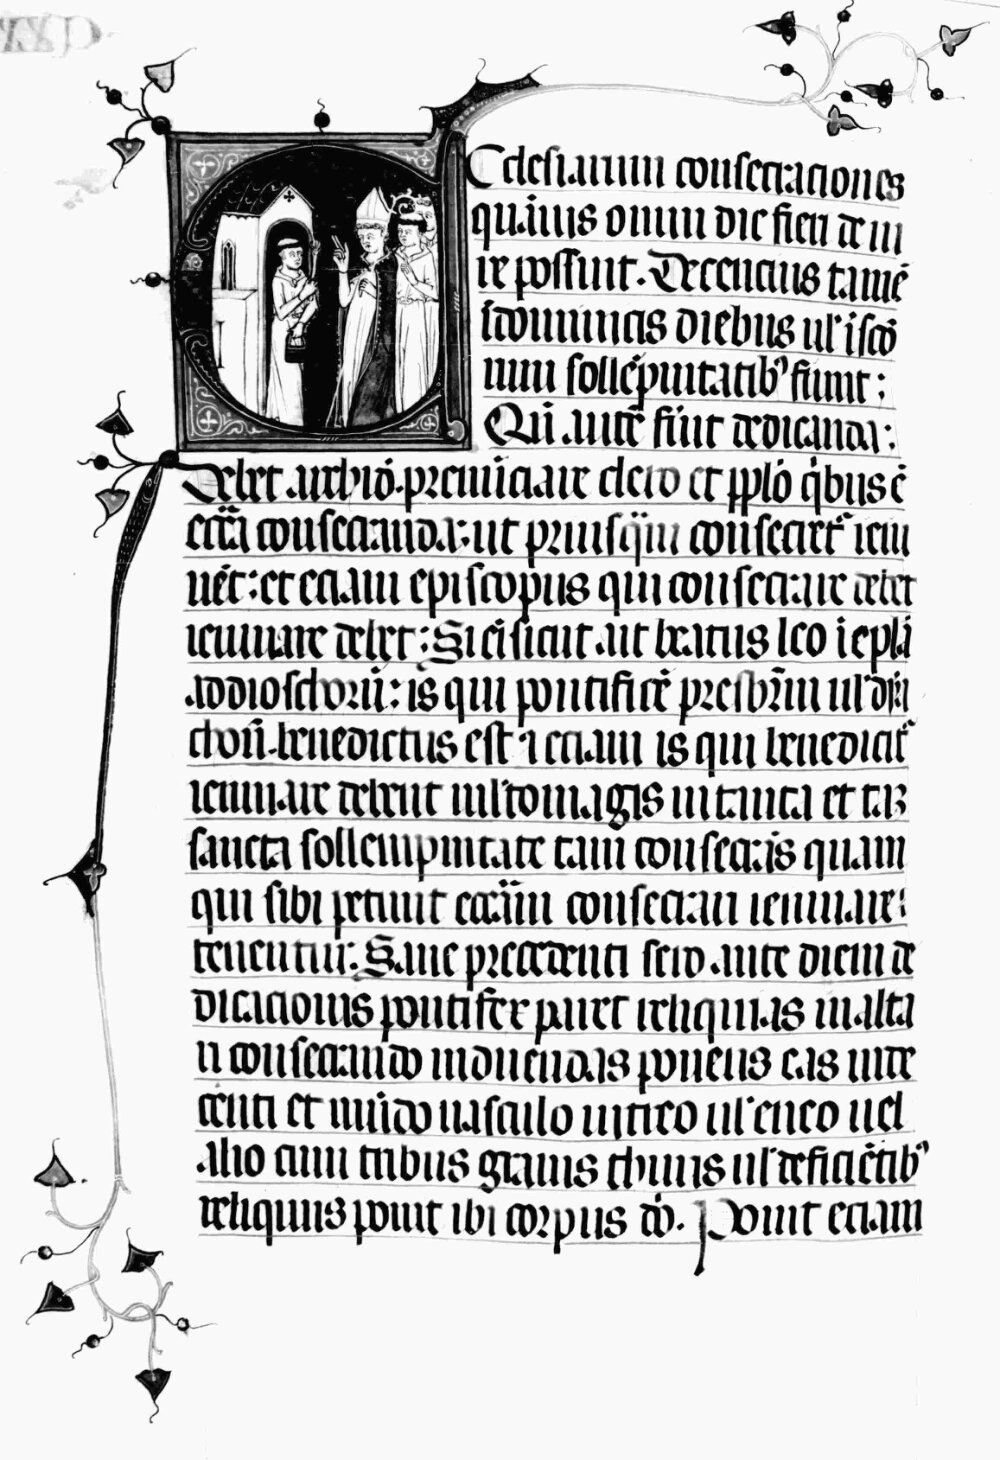 Cclesiarum consecraciones
quāuis omni die fieri de iu
re possunt. Decencius tamē
ī dominicis diebus ul' ī scō
rum sollēpnitatib' fiunt:
Qn̄ aut̄ fūit dedicanda:
Debet archidō. prenūciare clero et pplō q̄bus ē
ecc̄a consecranda: ut priusq̄m consecret' ieiu
nēt: et eciam episcopus qui consecrare debet
ieiunare debet: Si eī sicut ait beatus leo ī epl̄a
ad dioschorū: is qui pontificē presbr̄m ul' dyā
chonū. benedicturus est et eciam is qui benedicit'
ieiunare debent mul'tomagis in tanta et tā
sancta sollempnitate tam consecrās quam
qui sibi petunt ecc̄am consecrari ieiunare:
tenentur: Sane precedenti sero ante diem de
dicacionis pontifex paret reliquias in alta
ri consecrando includendas ponens eas in de
centi et mūdo uasculo uitreo ul' eneo uel
alio cum tribus granis thuris ul' deficiētib'
reliquiis ponit ibi corpus dō. Ponit eciam